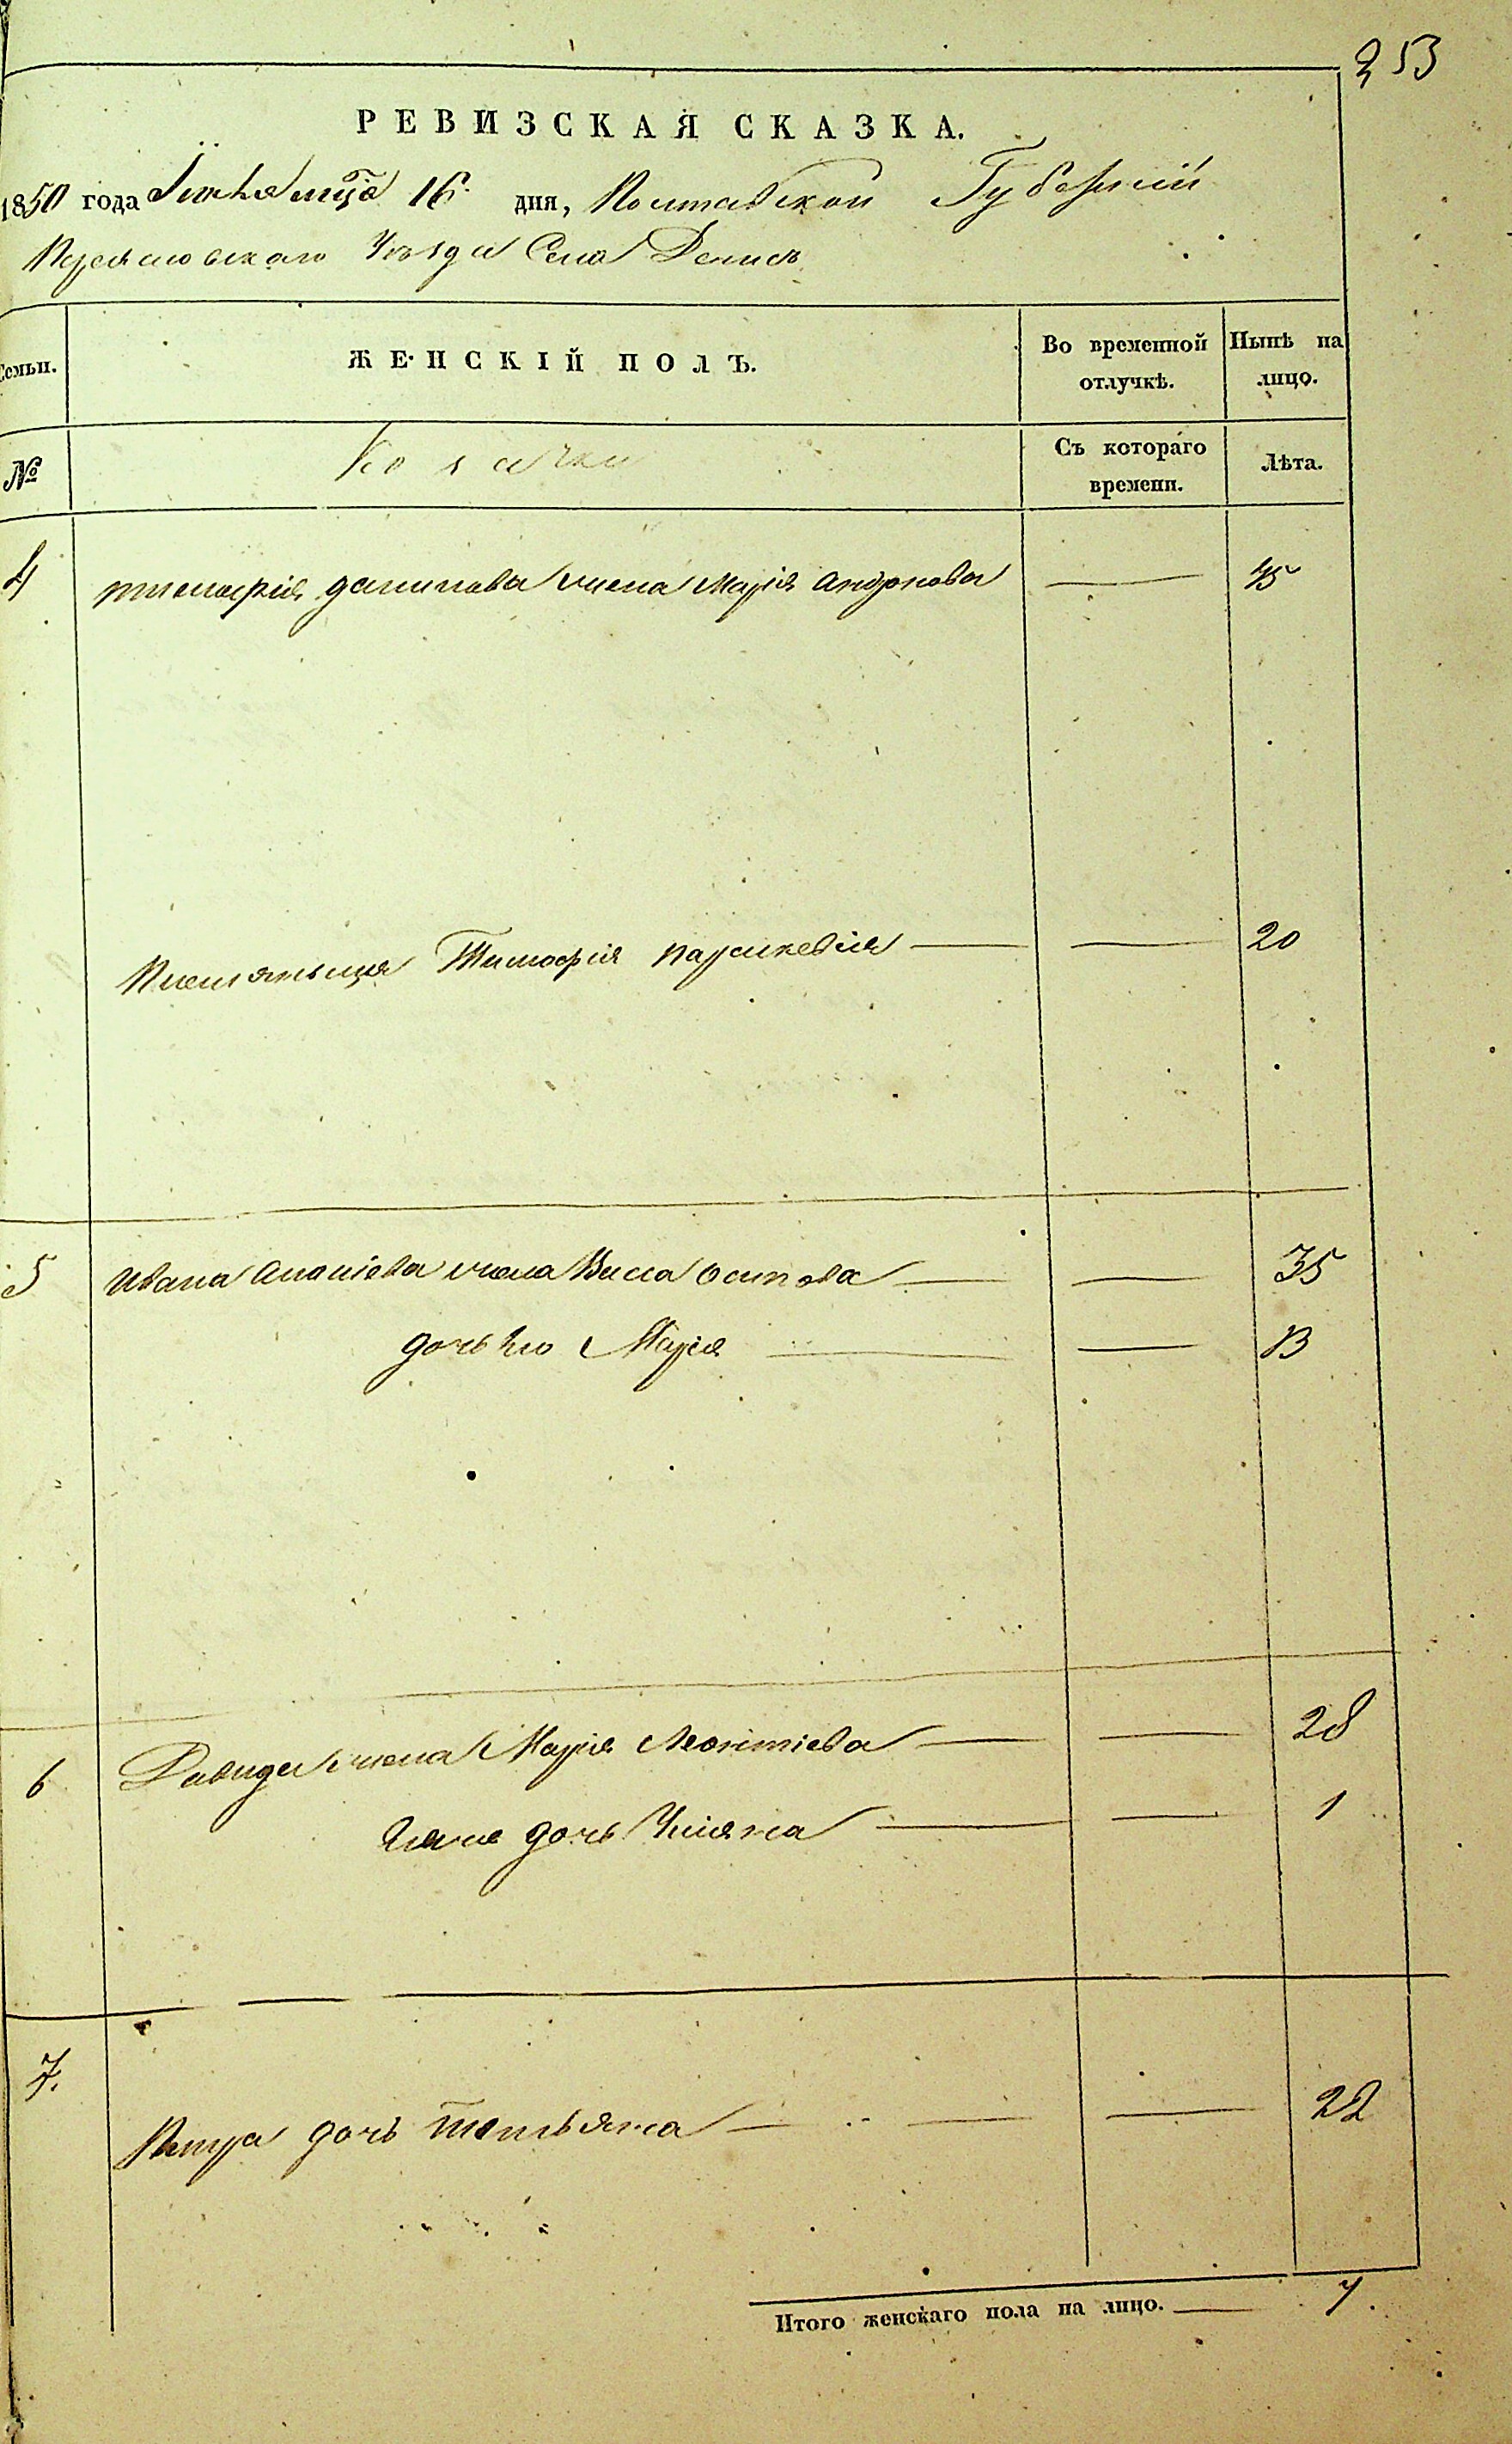 253
РЕВИЗСКАЯ СКАЗКА.
1850 года Іюня мца 16 дня, Полтавской Губерніи
Переяславскаго Уѣзда Села Денисъ
Семьи. ЖЕНСКІЙ ПОЛЪ. Во временной отлучкѣ. Нынѣ на лицо.
№ Козачки Съ котораго времени. Лѣта.
4 тимофія данилова жена Марія андрѣева — 45
Племяныця Тимофія параскевія — — 20
5 Ивана Ананіева жена Васса Осипова — — 35
дочь его Марія — — 13
6 Давида жена Марія Леонтіева — — 28
дочь Уліяна — — 1
7. Петра дочь татьяна — — — 22
Итого женскаго пола на лицо. — 7.